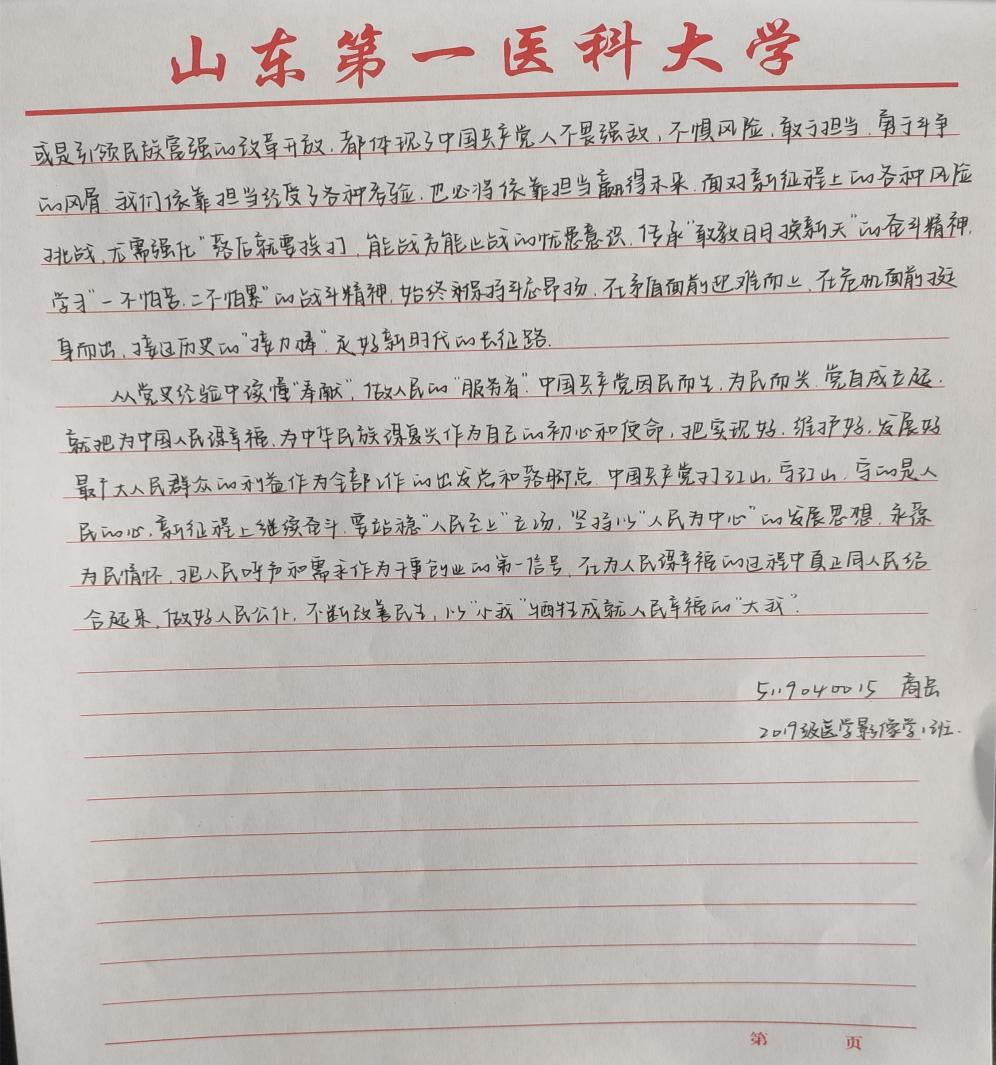 山东第一医科大学
或是引领民族富强的改革开放，都体现了中国共产党人不畏强敌，不惧风险，敢于担当，勇于斗争
的风骨。我们依靠担当经受了各种考验，也必将依靠担当赢得未来。面对新征程上的各种风险
挑战，尤需强化“落后就要挨打，能战方能止战的忧患意识，传承“敢教日月换新天”的奋斗精神，
学习“一不怕苦，二不怕累”的战斗精神，始终保持斗志昂扬，在矛盾面前迎难而上，在危机面前挺
身而出，接过历史的“接力棒”，走好新时代的长征路。
从党史经验中读懂“奉献”，做人民的“服务者”。中国共产党因民而生，为民而兴，党自成立起，
就把为中国人民谋幸福，为中华民族谋复兴作为自己的初心和使命，把实现好，维护好，发展好
最广大人民群众的利益作为全部工作的出发点和落脚点。中国共产党打江山，守江山，守的是人
民的心，新征程上继续奋斗，要站稳“人民至上”立场，坚持以“人民为中心”的发展思想，永葆
为民情怀，把人民呼声和需求作为干事创业的第一信号，在为人民谋幸福的过程中真正同人民结
合起来，做好人民公仆，不断改善民生，以“小我”牺牲成就人民幸福的“大我”。
5119040015 商岳
2019级医学影像学1班.
第 页